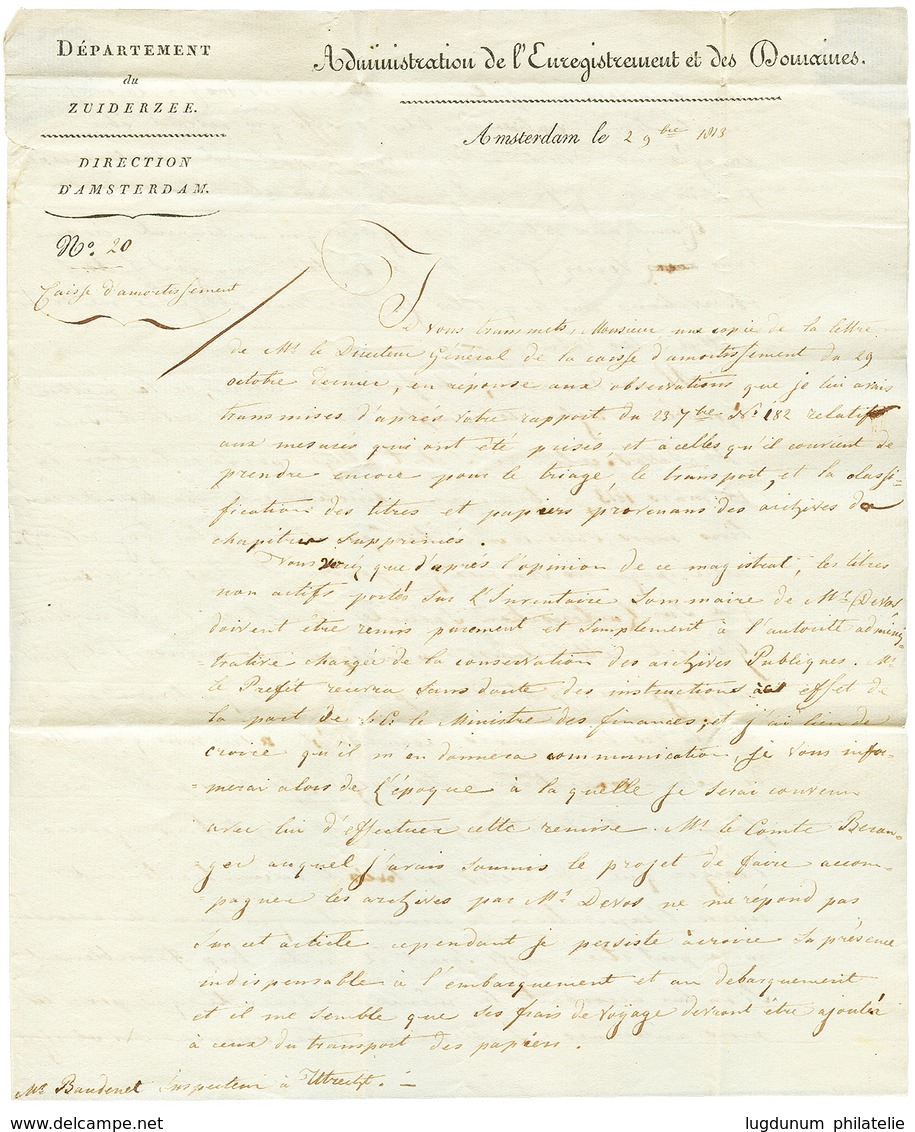 DÉPARTEMENT
du
ZUIDERZEE.
DIRECTION
D'AMSTERDAM.
Nº. 20
Caisse d'amortissement
Administration de l'Enregistrement et des Domaines.
Amsterdam le 2 9bre 1813
Je vous transmets, Monsieur une copie de la lettre
de Mr. le Directeur Général de la caisse d'amortissement du 29
octobre dernier, en réponse aux observations que je lui avais
transmises d'après votre rapport du 23 7bre Nº 182 relatif
aux mesures qui ont été prises, et à celles qu'il convient de
prendre encore pour le triage, le transport, et la classi-
fication des titres et papiers provenans des archives de
chapitres supprimés.
Vous verrez que d'après l'opinion de ce magistrat, les titres
non actifs portés sur l'Inventaire Sommaire de Mr. Devos
doivent être remis purement et simplement à l'autorité adminis
=trative chargée de la conservation des archives Publiques. Mr.
le Préfet recevra sans doute des instructions à cet effet de
la part de S.E. le Ministre des finances, et j'ai lieu de
croire qu'il m'en donnera communication, je vous infor=
=merai alors de l'époque à la quelle je serai convenu
avec lui d'effectuer cette remise. Mr. le Comte Beran=
=ger auquel j'avais soumis le projet de faire accom=
=pagner les archives par Mr. Devos ne me répond pas
sur cet article cependant je persiste à croire sa présence
indispensable à l'embarquement et au debarquement
et il me semble que ses frais de voyage devront être ajoutés
à ceux du transport des papiers.
Mr. Baudenet Inspecteur à Utrecht. -
www.delcampe.net
lugdunum philatelie